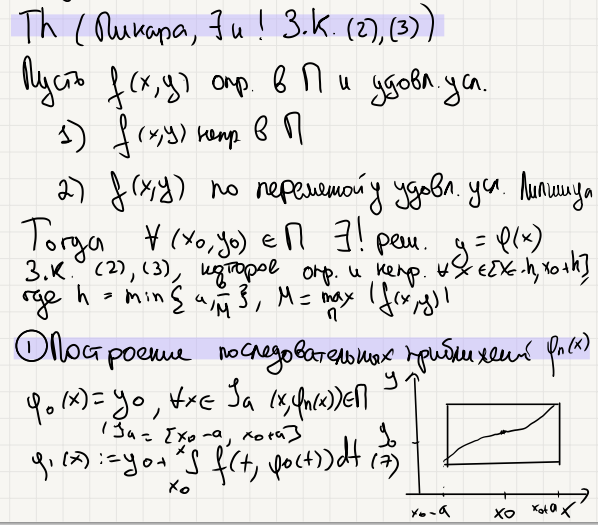 Th (Пикара, ∃ и ! З.К. (2),(3))
Пусть f(x,y) опр. в П и удовл. усл.
1) f(x,y) непр в П
2) f(x,y) по переменной y удовл. усл. Липшица
Тогда ∀ (x₀,y₀) ∈ П ∃! реш. y = φ(x)
З.К. (2), (3), которое опр. и непр. ∀ x ∈ [x₀-h, x₀+h]
где h = min{a, в/M}, M = max_П |f(x,y)|
① Построение последовательных приближений φₙ(x)
φ₀(x) = y₀, ∀x ∈ Jₐ (x, φₙ(x)) ∈ П
Jₐ = [x₀-a, x₀+a]
φ₁(x) := y₀ + ∫_{x₀}^{x} f(t, φ₀(t)) dt (7)
y
y₀
x₀-a x₀ x₀+a x